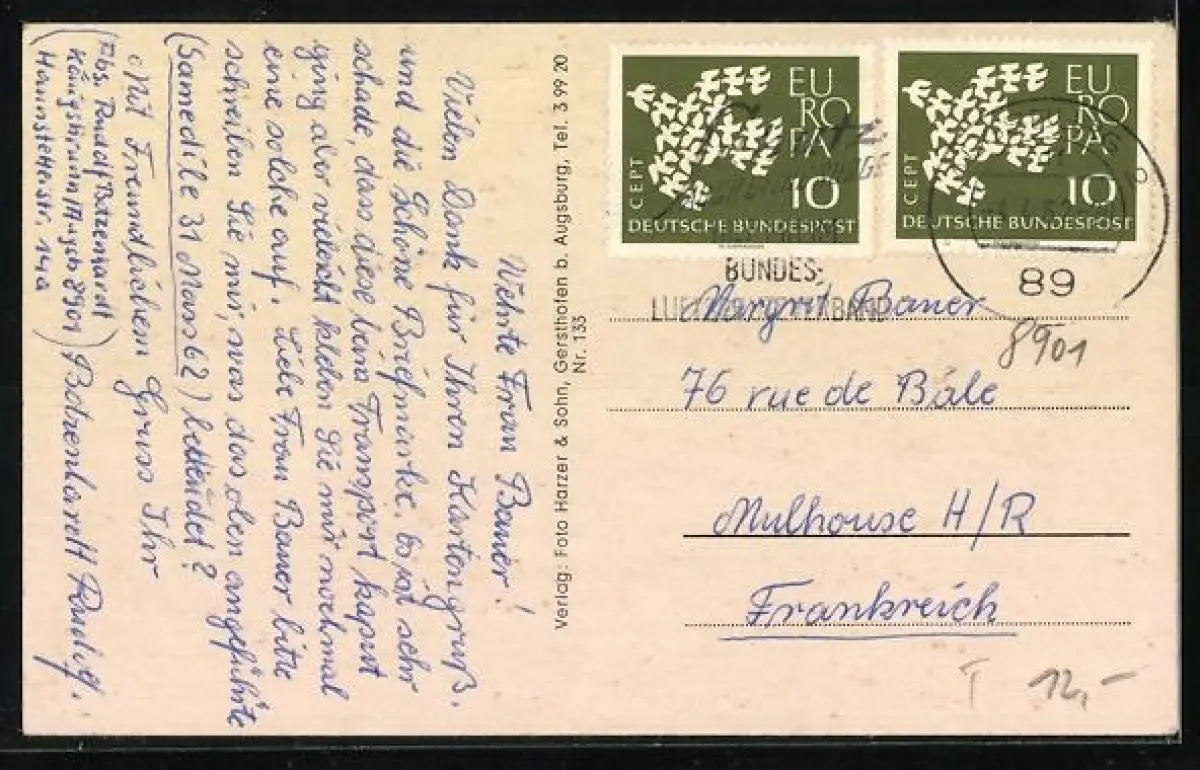 Werte Frau Bauer!
Vielen Dank für Ihren Kartengruß.
und die schöne Briefmarke, es ist sehr
schade, dass diese beim Transport kaputt
ging aber vieleicht kleben Sie mir nochmal
eine solche auf. Liebe Frau Bauer bitte
schreiben Sie mir, was das oben angeführte
(Samedile 31 Mars 62) bedeudet?
Mit Freundlichem Gruss Ihr
Betzenhardt Rudolf.
(Abs. Rudolf Betzenhardt
Königsbrunn/Augsb. 8901
Haunstetterstr. 149a)
Verlag: Foto Harzer & Sohn, Gersthofen b. Augsburg, Tel. 3 99 20
Nr. 133
EU
RO
PA
CEPT
10
DEUTSCHE BUNDESPOST
EU
RO
PA
CEPT
10
DEUTSCHE BUNDESPOST
BUNDES-
89
Margrit Bauer
8901
76 rue de Bâle
Mulhouse H/R
Frankreich
T 12,-